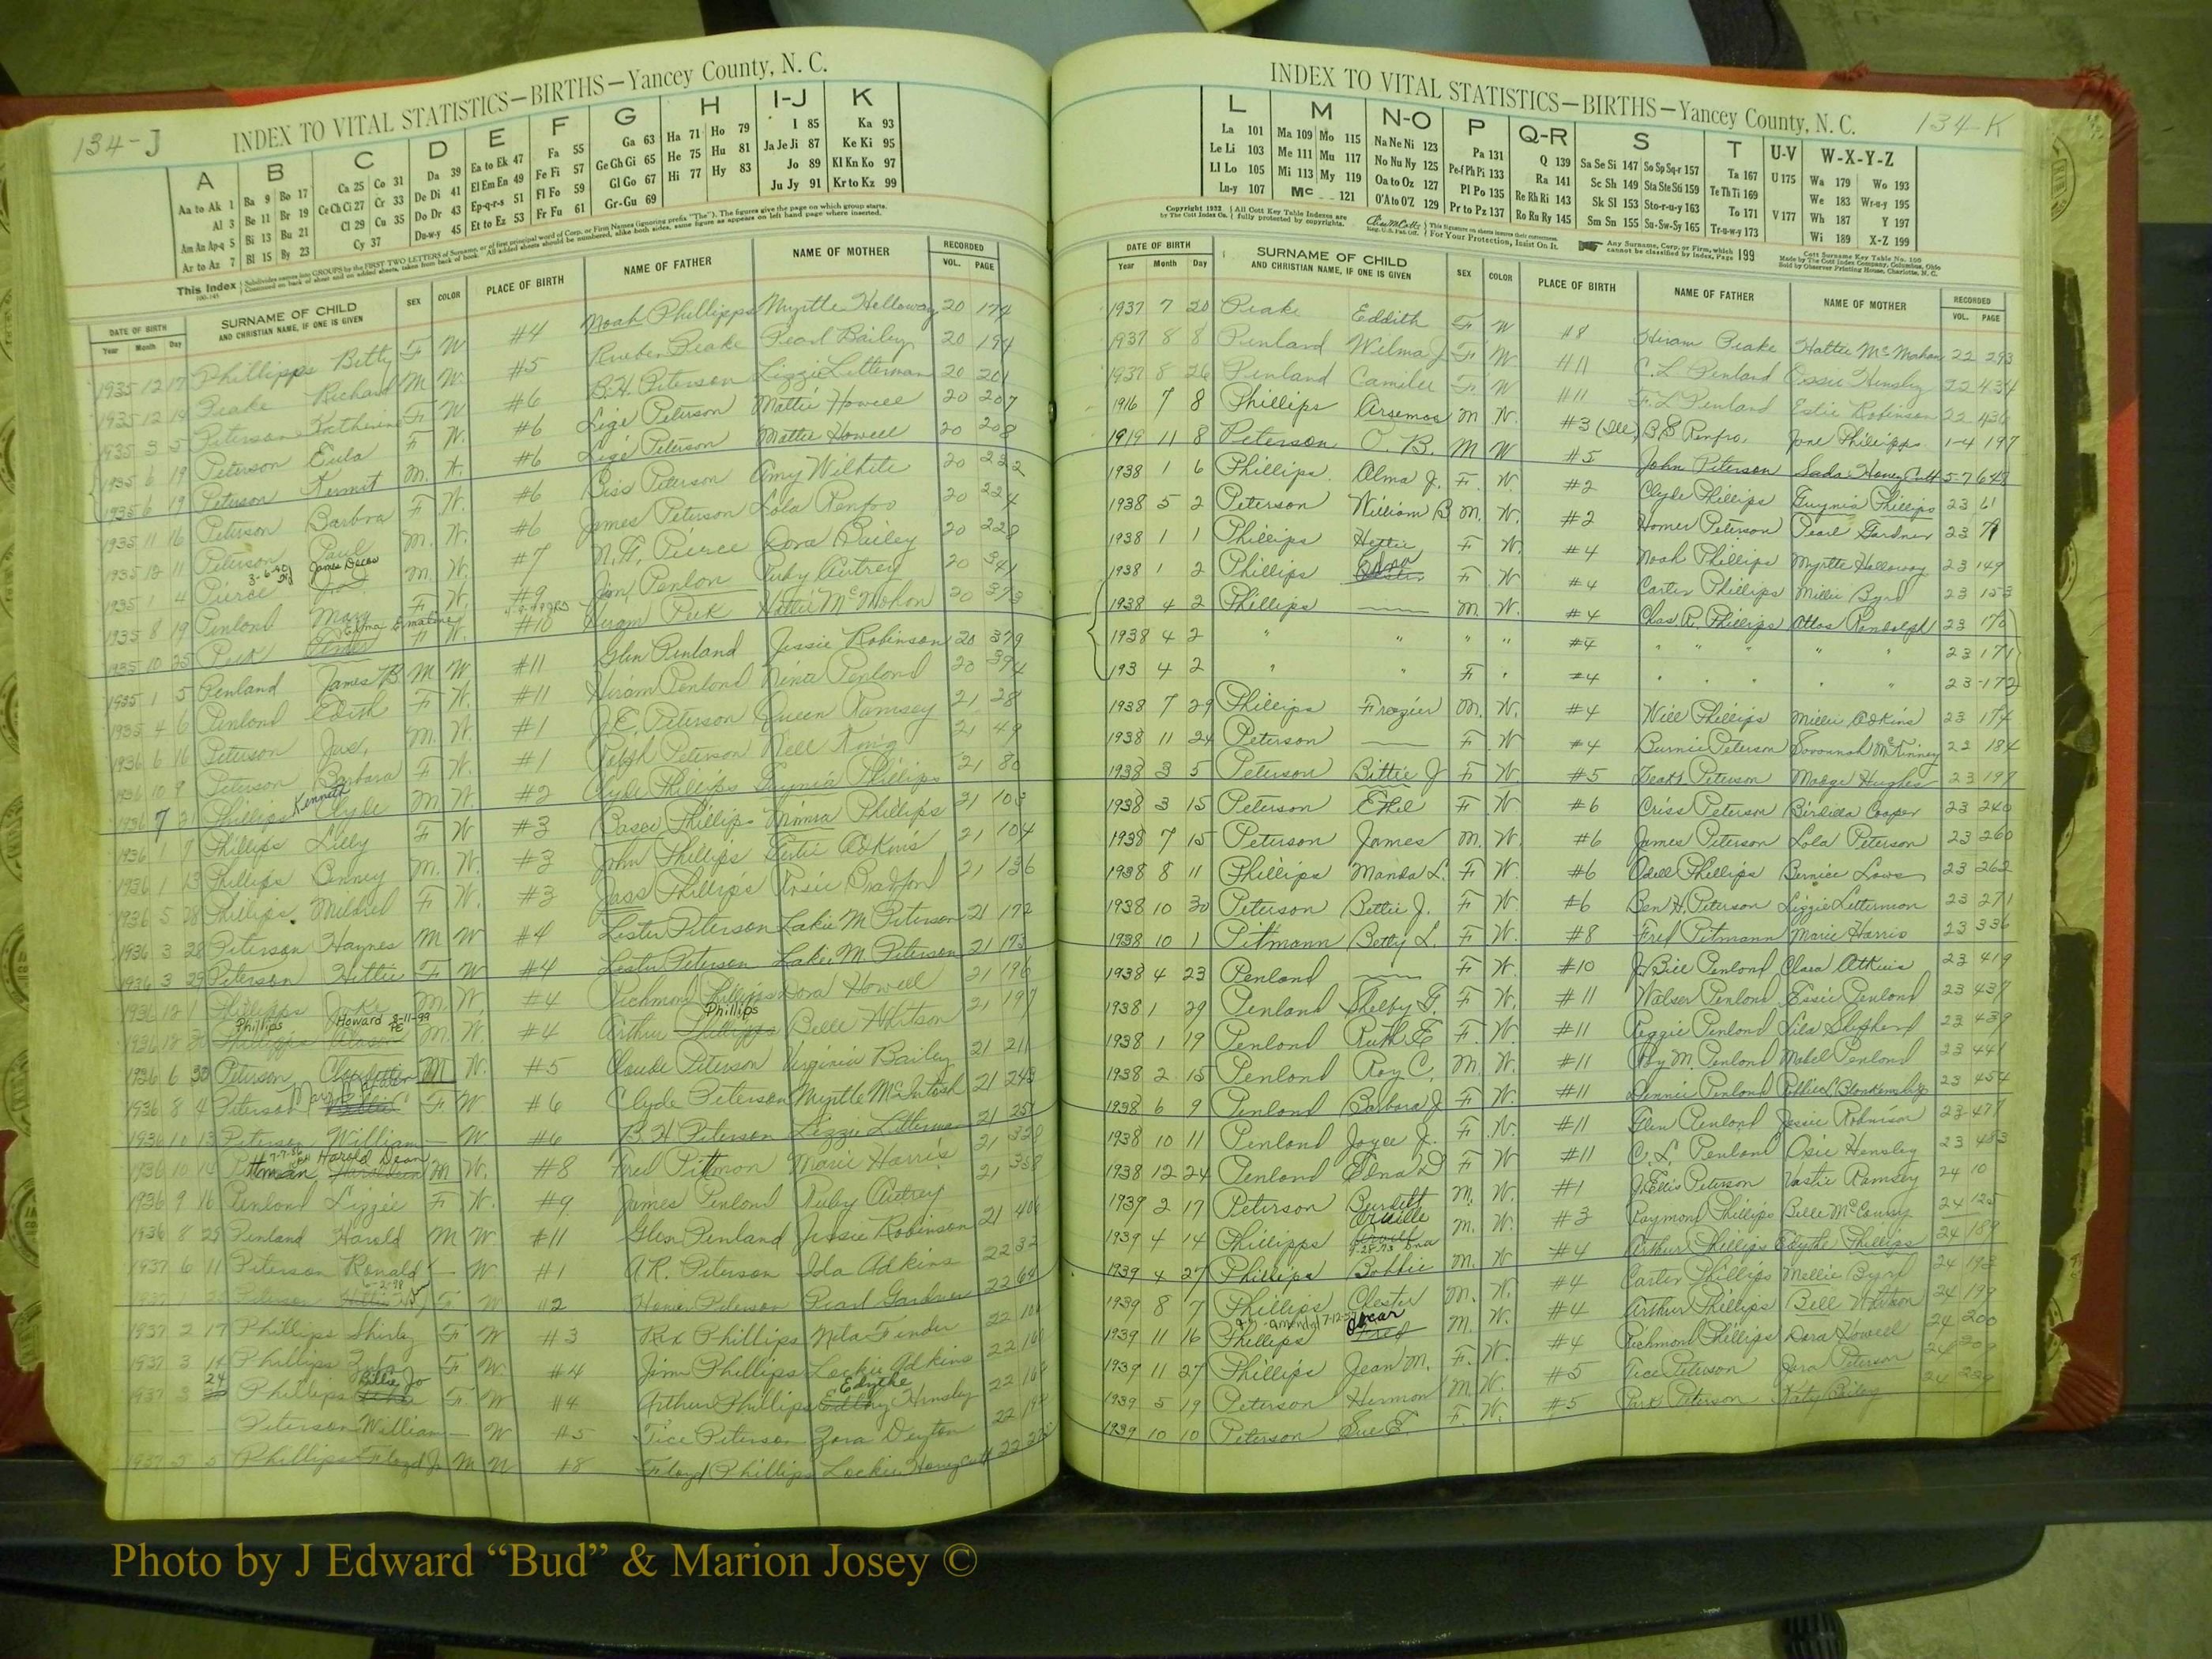 134-J
INDEX TO VITAL STATISTICS—BIRTHS—Yancey County, N. C.
A B C D E F G H I-J K
Aa to Ak 1 Ba 9 Bo 17 Ca 25 Co 31 Da 39 Ea to Ek 47 Fa 55 Ga 63 Ha 71 Ho 79 I 85 Ka 93
Al 3 Be 11 Br 19 Ce Ch Ci 27 Cr 33 De Di 41 El Em En 49 Fe Fi 57 Ge Gh Gi 65 He 75 Hu 81 Ja Je Ji 87 Ke Ki 95
Am An Ap-q 5 Bi 13 Bu 21 Cl 29 Cu 35 Do Dr 43 Ep-q-r-s 51 Fl Fo 59 Gl Go 67 Hi 77 Hy 83 Jo 89 Kl Kn Ko 97
Ar to Az 7 Bl 15 By 23 Cy 37 Du-w-y 45 Et to Ez 53 Fr Fu 61 Gr-Gu 69 Ju Jy 91 Kr to Kz 99
DATE OF BIRTH SURNAME OF CHILD SEX COLOR PLACE OF BIRTH NAME OF FATHER NAME OF MOTHER RECORDED
Year Month Day AND CHRISTIAN NAME, IF ONE IS GIVEN VOL. PAGE
1935 12 17 Phillipps Betty F W #4 Noah Phillipps Myrtle Holloway 20 174
1935 12 14 Peake Richard M W #5 Rueben Peake Pearl Bailey 20 194
1935 3 5 Peterson Katherine F W #6 B.H. Peterson Lizzie Letterman 20 201
1935 6 19 Peterson Eula F W. #6 Lige Peterson Mattie Howell 20 207
1935 6 19 Peterson Kermit M. #6 Lige Peterson Mattie Howell 20 208
1935 11 16 Peterson Barbra F W. #6 Peterson Amy Wilhite 20
1935 12 11 Peterson Paul M. W. #6 James Peterson Lola Renfro 20 224
1935 1 4 Pierce James M. W. #7 Pierce Dora Bailey 20 228
1935 8 19 Penlond Mary F W #9 Jim Penlon Ruby Autrey 20 341
1935 10 25 Peek W. #10 Hiram Peek Hattie McMohon 20 373
1935 1 5 Penland James B M W #11 Glen Penland Jessie Robinson 20 379
1935 4 6 Penlond Edith F W. #11 Hiram Penlond Nina Penlond 20 394
1936 6 16 Peterson M. W. #1 J.E. Peterson Queen Ramsey 21 28
1936 10 9 Peterson Barbara F W. #1 Ralph Peterson Nell King 21 49
1936 7 21 Phillips Kenneth Clyde M W. #2 Clyde Phillips Phillips 21 80
1936 1 7 Phillips Lilly F W #3 Phillips Phillips 21 103
1936 1 13 Phillips M. W. #3 John Phillips Adkins 21 104
1936 5 28 Phillips Mildred F W. #3 Phillips Bradford 21 136
1936 3 28 Peterson Haynes M W #4 Lester Peterson Lakie M Peterson 21 172
1936 3 29 Peterson Hettie F W #4 Lester Peterson Lakie M Peterson 21 173
1936 12 1 Phillipps M. W. #4 Richmond Phillipps Dora Howell 21 196
1936 12 Phillips Howard M. W. #4 Arthur Phillips Belle Whitson 21 197
1936 6 30 Peterson M W. #5 Claude Peterson Virginia Bailey 21 211
1936 8 4 Peterson F W. #6 Clyde Peterson Myrtle McIntosh 21 243
1936 10 13 Peterson William — W #6 B H Peterson Lizzie Letterman 21
1936 10 14 Pittman Harold Dean M W. #8 Fred Pittmon Marie Harris 21
1936 9 16 Penlond Lizzie F W. #9 James Penlond Ruby Autrey 21 358
1936 8 29 Penland Harold M W #11 Glen Penland Jessie Robinson 21
1937 6 11 Peterson Ronald — W #1 A R. Peterson Ida Adkins 22 32
1937 Peterson F W #2 Homer Peterson Pearl Gardner 22 64
1937 2 17 Phillips Shirly F W #3 Rex Phillips Nola Fender 22
1937 3 14 Phillips F W. #4 Jim Phillips Lockie Adkins 22
1937 3 24 Phillips Billie Jo F W #4 Arthur Phillips Edythe Hensley 22
Peterson William — W #5 Tice Peterson Zora Deyton 22
1937 5 5 Phillips Floyd Jr M W #8 Floyd Phillips Lockie Honeycutt 22
134-K
INDEX TO VITAL STATISTICS—BIRTHS—Yancey County, N. C.
L M N-O P Q-R S T U-V W-X-Y-Z
La 101 Ma 109 Mo 115 Na Ne Ni 123 Pa 131 Q 139 Sa Se Si 147 So Sp Sq-r 157 Ta 167 U 175 Wa 179 Wo 193
Le Li 103 Me 111 Mu 117 No Nu Ny 125 Pe-f Ph Pi 133 Ra 141 Sc Sh 149 Sta Ste Sti 159 Te Th Ti 169 We 183 Wr-u-y 195
Ll Lo 105 Mi 113 My 119 Oa to Oz 127 Pl Po 135 Re Rh Ri 143 Sk Sl 153 Sto-r-u-y 163 To 171 V 177 Wh 187 Y 197
Lu-y 107 Mc 121 O'A to O'Z 129 Pr to Pz 137 Ro Ru Ry 145 Sm Sn 155 Su-Sw-Sy 165 Tr-u-w-y 173 Wi 189 X-Z 199
Copyright 1922 by The Cott Index Co. All Cott Key Table Indexes are fully protected by copyrights. For Your Protection, Insist On It. Any Surname, Corp. or Firm, which cannot be classified by Index, Page 199
Cott Surname Key Table No. 150 Made by The Cott Index Company, Columbus, Ohio Sold by Observer Printing House, Charlotte, N. C.
DATE OF BIRTH SURNAME OF CHILD SEX COLOR PLACE OF BIRTH NAME OF FATHER NAME OF MOTHER RECORDED
Year Month Day AND CHRISTIAN NAME, IF ONE IS GIVEN VOL. PAGE
1937 7 20 Peake Eddith F W #8 Hiram Peake Hattie McMahan 22 293
1937 8 8 Penland Wilma J F W #11 C. L Penland Ossie Hensley 22 434
1937 8 26 Penland Camilee F W #11 F. L Penland Estie Robinson 22 436
1916 7 8 Phillips Arsemos M W. #3 B S Renfro Jane Phillipps 1-4 197
1919 11 8 Peterson O. B. M W #5 John Peterson Sada Honeycutt 5-7 648
1938 1 6 Phillips. Alma J. F. W. #2 Clyde Phillips Guynia Phillips 23 61
1938 5 2 Peterson William B M. W. #2 Homer Peterson Pearl Gardner 23 79
1938 1 1 Phillips Hettie F W. #4 Noah Phillips Myrtle Holloway 23 149
1938 1 2 Phillips Edna F W #4 Carter Phillips Millie Byrd 23 153
1938 4 2 Phillips —— M. W. #4 Chas R. Phillips Atlas Randolph 23 170
1938 4 2 " " " " #4 " " " " 23 171
193 4 2 " " F " #4 " " " " 23-172
1938 7 29 Phillips Frazier M. W. #4 Will Phillips Millie Adkins 23 174
1938 11 24 Peterson —— F W #4 Burnie Peterson Savannah McKinney 23 184
1938 3 5 Peterson Bittie J F W #5 Peterson Madge Hughes 23 197
1938 3 15 Peterson Ethel F W #6 Criss Peterson Birdella Cooper 23 240
1938 7 15 Peterson James M. W. #6 James Peterson Lola Peterson 23 260
1938 8 11 Phillips Manda L. F W. #6 Odell Phillips Bernice Laws 23 262
1938 10 30 Peterson Bettie J. F W. #6 Ben H. Peterson Lizzie Lettermon 23 271
1938 10 1 Pitmann Betty L. F. W. #8 Fred Pitmann Marie Harris 23 336
1938 4 23 Penlond —— F W. #10 J. Bill Penlond Clara Atkins 23 419
1938 1 29 Penland Shelby G. F W. #11 Walser Penlond Essie Penlond 23 437
1938 1 19 Penlond Ruth E F. W. #11 Reggie Penlond Lila Shepherd 23 439
1938 2 15 Penlond Roy C. M. W. #11 Roy M. Penlond Mabel Penlond 23 441
1938 6 9 Penlond Barbara J F W. #11 Penlond Blankenship 23 454
1938 10 11 Penlond Joyce J. F W. #11 Glen Penlond Jessie Robinson 23-477
1938 12 24 Penlond Edna D F W #11 C. L. Penlond Osie Hensley 23 483
1939 2 17 Peterson Burdett M. W. #1 J. Ellis Peterson Vastie Ramsey 24 10
1939 4 14 Phillipps Orville M. W. #3 Raymond Phillips Belle McCourry 24 125
1939 4 27 Phillips Bobbie M. W #4 Arthur Phillips Edythe Phillips 24 189
1939 8 7 Phillips Chester M. W. #4 Carter Phillips Mellie Byrd 24 193
1939 11 16 Phillips Oscar M. W. #4 Arthur Phillips Bell Whitson 24 199
1939 11 27 Phillips Jean M. F. W. #4 Richmond Phillips Dora Howell 24 200
1939 5 19 Peterson Hermon M. W. #5 Tice Peterson Peterson 24
1939 10 10 Peterson Sue E. F. W. #5 Park Peterson Katy Riley 24
Photo by J Edward “Bud” & Marion Josey ©